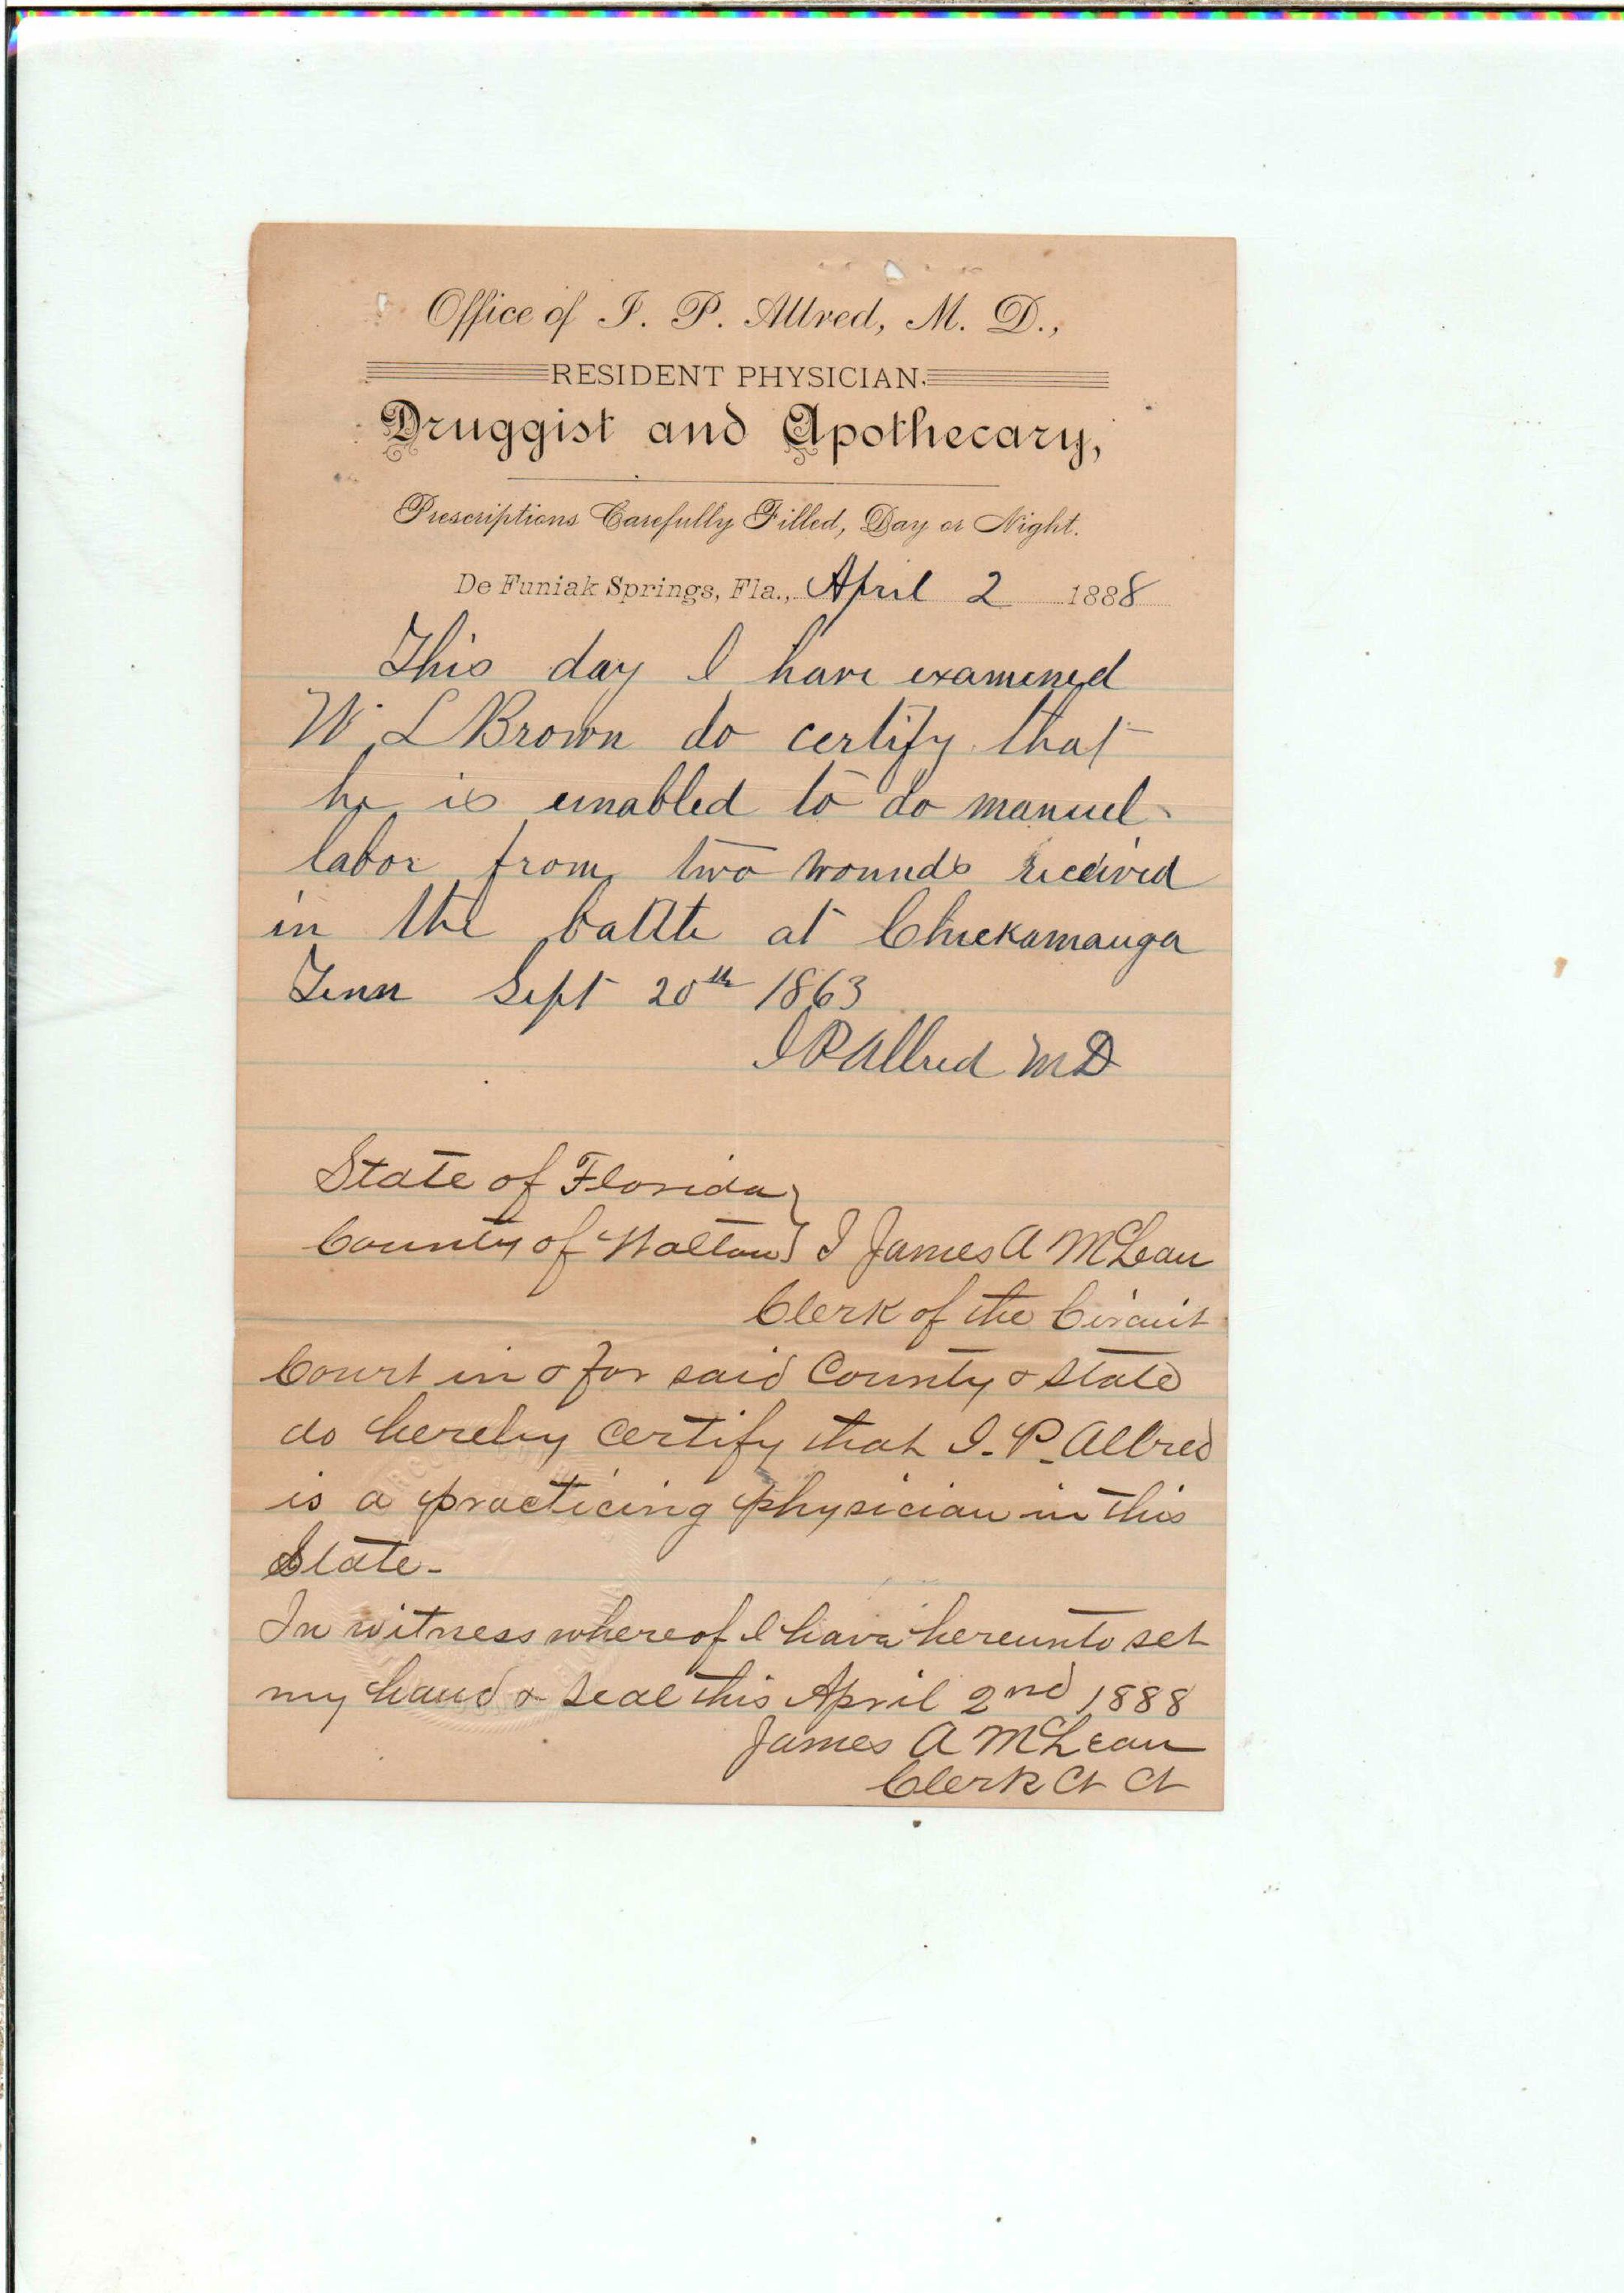 Office of I. P. Allred, M. D.,
RESIDENT PHYSICIAN.
Druggist and Apothecary,
Prescriptions Carefully Filled, Day or Night.
De Funiak Springs, Fla., April 2 1888
This day I have examened
W. L Brown do certify that
he is unabled to do manuel
labor from two wounds received
in the battle at Chickamauga
Tenn Sept 20th 1863
I P Allred MD
State of Florida }
County of Walton } I James A McLean
Clerk of the Circuit
Court in & for said County & State
do hereby certify that I. P. Allred
is a practicing physician in this
State-
In witness whereof I have hereunto set
my hand & seal this April 2nd 1888
James A McLean
Clerk Ct Ct